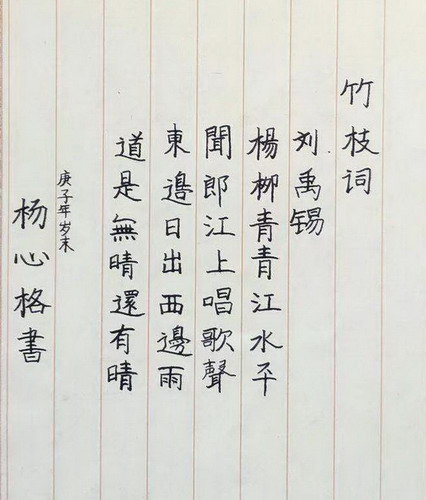 竹枝词
刘禹锡
楊柳青青江水平
聞郎江上唱歌聲
東邉日出西邊雨
道是無晴還有晴
庚子年岁末
杨心格書